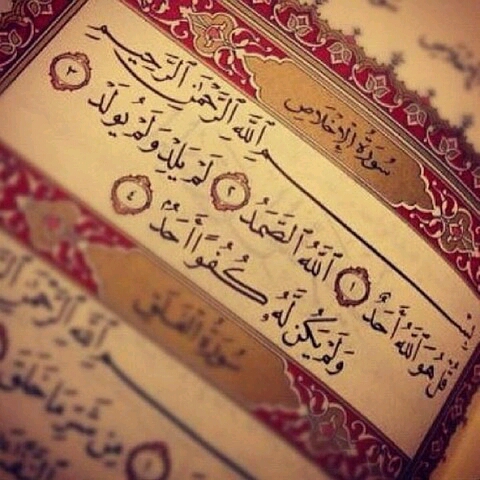 سُورَةُ الإِخْلَاصِ
بِسْمِ ٱللَّهِ ٱلرَّحْمَٰنِ ٱلرَّحِيمِ
قُلْ هُوَ ٱللَّهُ أَحَدٌ ١ ٱللَّهُ ٱلصَّمَدُ ٢ لَمْ يَلِدْ وَلَمْ يُولَدْ ٣
وَلَمْ يَكُن لَّهُۥ كُفُوًا أَحَدٌۢ ٤
سُورَةُ الفَلَقِ
ٱللَّهِ ٱلرَّحْمَٰنِ
مِن شَرِّ مَا خَلَقَ